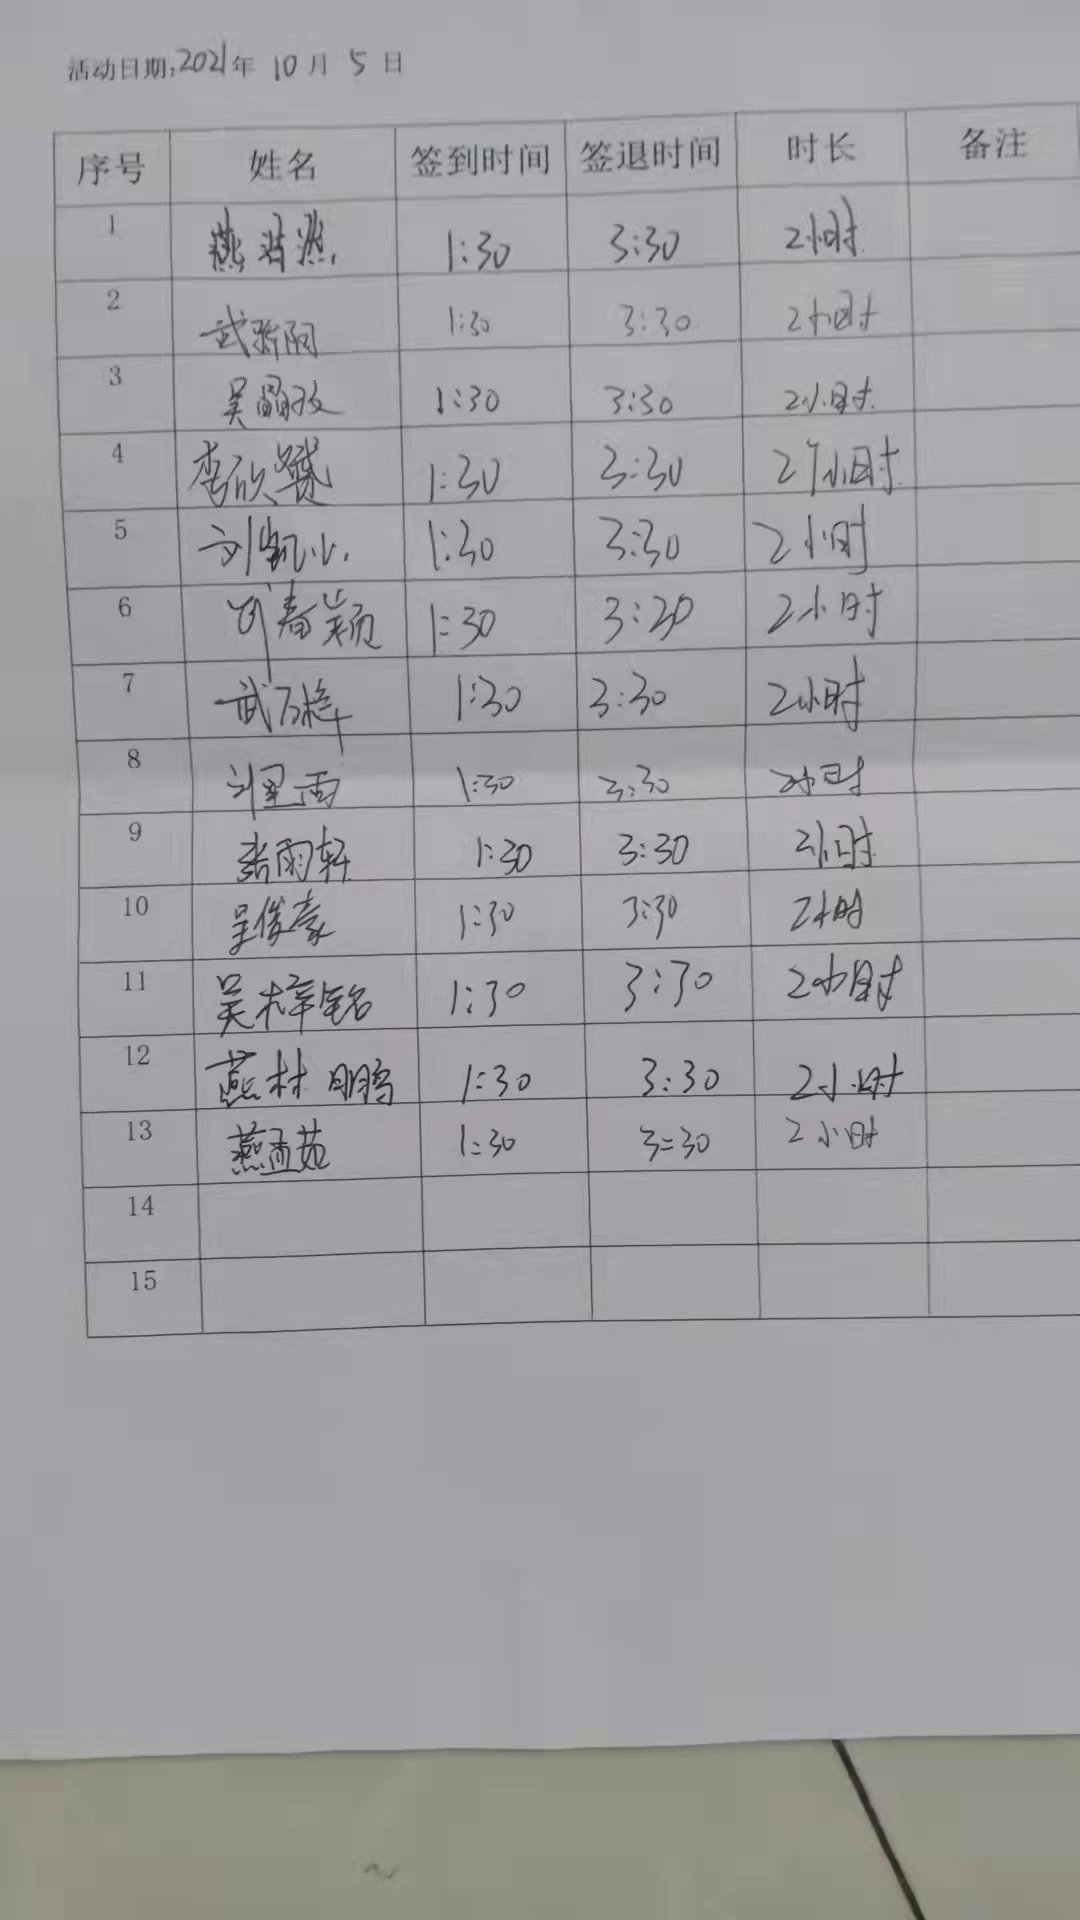 活动日期:2021年 10月 5日
序号 姓名 签到时间 签退时间 时长 备注
1 燕 1:30 3:30 2小时
2 武 阳 1:30 3:30 2小时
3 吴 1:30 3:30 2小时.
4 李欣 1:30 3:30 2个小时.
5 刘凯小. 1:30 3:30 2小时
6 春颖 1:30 3:20 2小时
7 武万梓 1:30 3:30 2小时
8 刘星雨 1:30 3:30 2小时
9 张雨轩 1:30 3:30 2小时
10 吴俊豪 1:30 3:30 2小时
11 吴梓铭 1:30 3:30 2小时
12 燕林鹏 1:30 3:30 2小时
13 燕孟茹 1:30 3:30 2小时
14
15